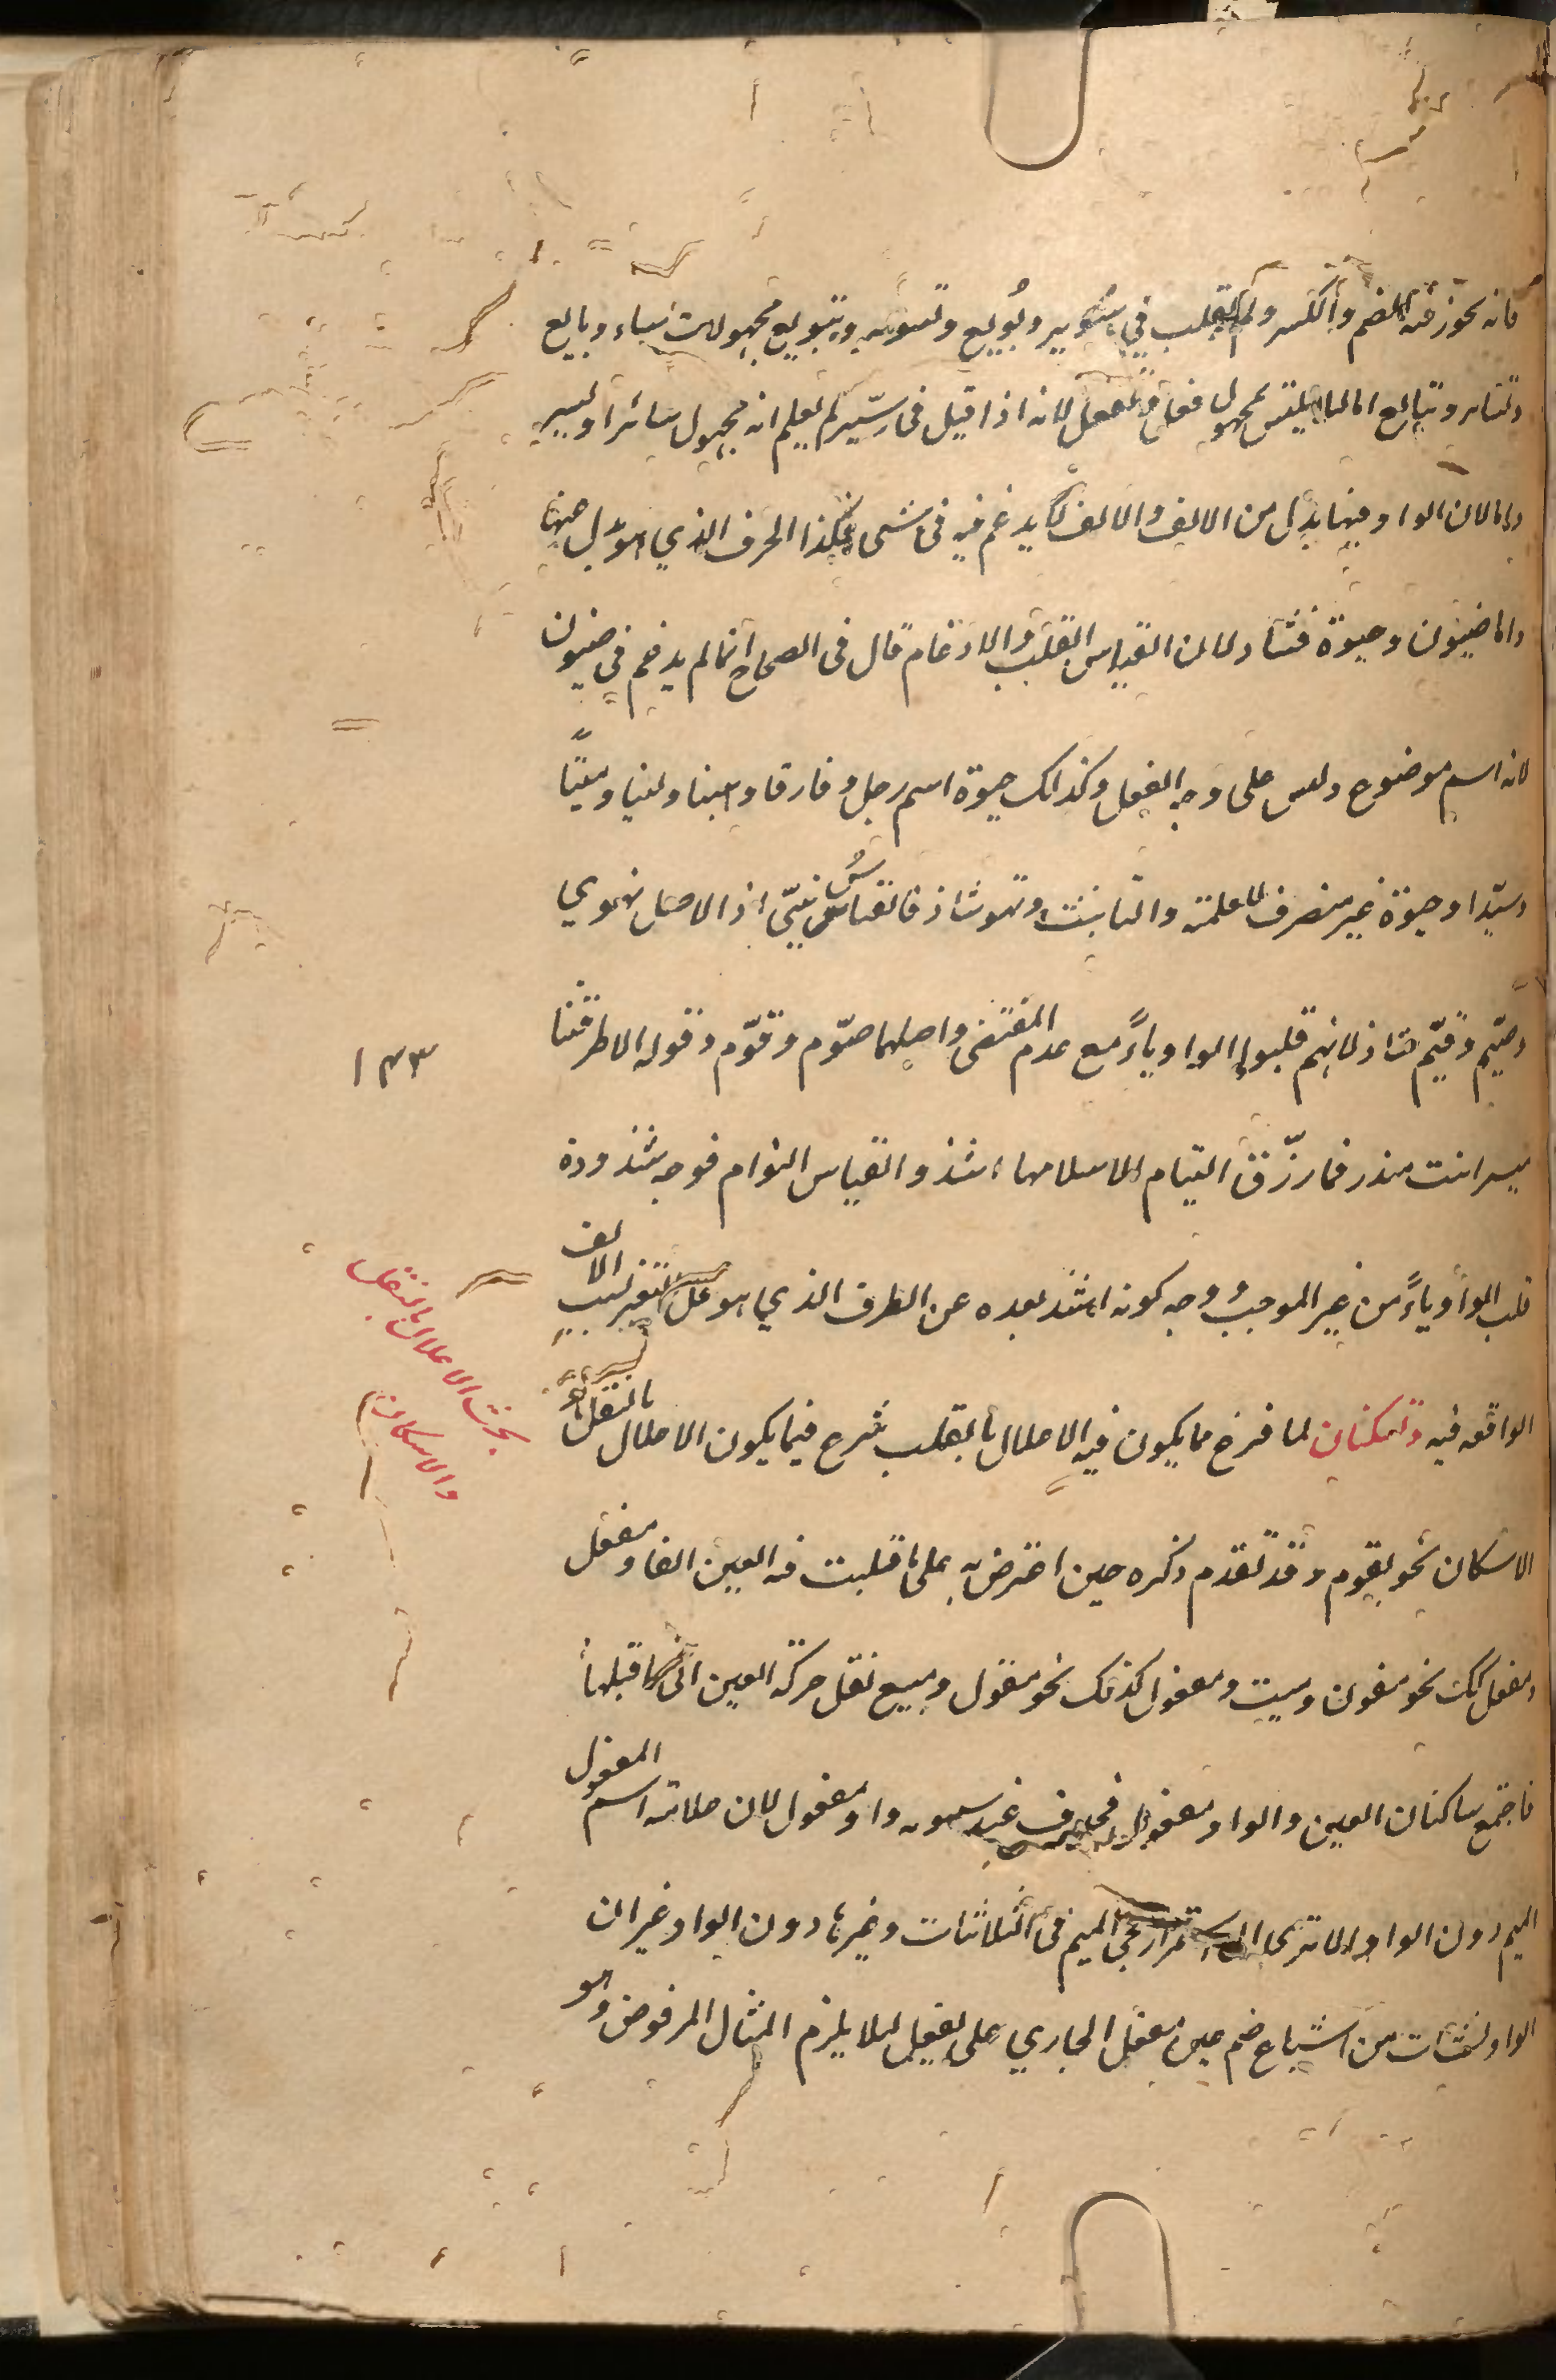 فانه يجوز فيه الضم والكسر ولم يقلب في سُوير وبُويع وتسوير وتبويع مجهولات ساير وبايع
وتساير وتبايع اما لئلا يلتبس بمجهول فعل وتفعل لانه اذا قيل في سيّر لم يعلم انه مجهول سائر او سير
واما لان الواو فيها بدل من الالف والالف لا يدغم فيه في شئ فكذا الحرف الذي هو بدل منها
واما ضيون وحيوة فشاذ لان القياس القلب والادغام قال في الصحاح انما لم يدغم في ضيون
لانه اسم موضوع وليس على وجه الفعل وكذلك حيوة اسم رجل وفارقا هينا ولينا وميتًا
وسيّدا وحيوة غير منصرف للعلمية والتانيث ونهو شاذ فالقياس نهيّ اذ الاصل نهوي
وصيّم وقيّم شاذ لانهم قلبوا الواو ياءً مع عدم المقتضى واصلهما صوّم وقوّم وقوله الا طرقتنا
مية ابنت منذر فما ارّق النيام الا سلامها اشذ والقياس النوام فوجه شذوذه
قلب الواو ياءً من غير الموجب ووجه كونه اشذ بعده عن الطرف الذي هو محل التغير بسبب الالف
الواقعه فيه وتسكنان لما فرغ مما يكون فيه الاعلال بالقلب شرع فيما يكون الاعلال بالنقل او
الاسكان نحو يقوم وقد تقدم ذكره حين اعترض به على ما قلبت فيه العين الفا ومفعل
ومفعل كذلك نحو معون ومبيت ومفعول كذلك نحو مقول ومبيع نقل حركة العين الى ما قبلها
فاجتمع ساكنان العين والواو مفعول فحذف عند سيبويه واو مفعول لان علامة اسم المفعول
الميم دون الواو الا ترى الى استمرار مجئ الميم في الثلاثيات وغيرها دون الواو غير ان
الواو نشأت من اشباع ضم عين مفعل الجاري على يفعل لئلا يلزم المثال المرفوض وهو
١٣٣
بحث الاعلال بالنقل
والاسكان